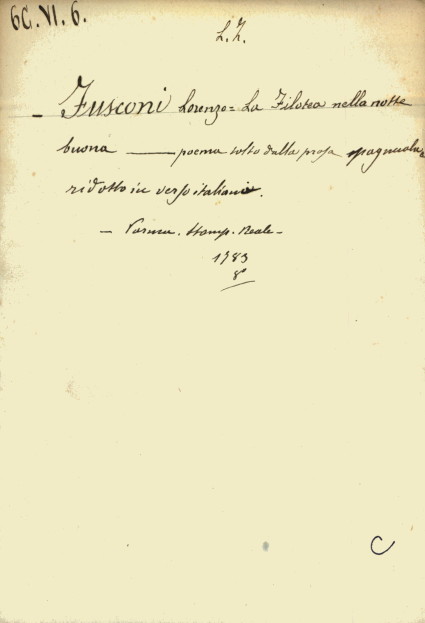 6C.VI.6.
L.Z.
- Fusconi Lorenzo = La Filotea nella notte
buona —— poema tolto dalla prosa spagnuola,
ridotto in verso italiano.
- Parma. Stamp. Reale -
1783
8°
C